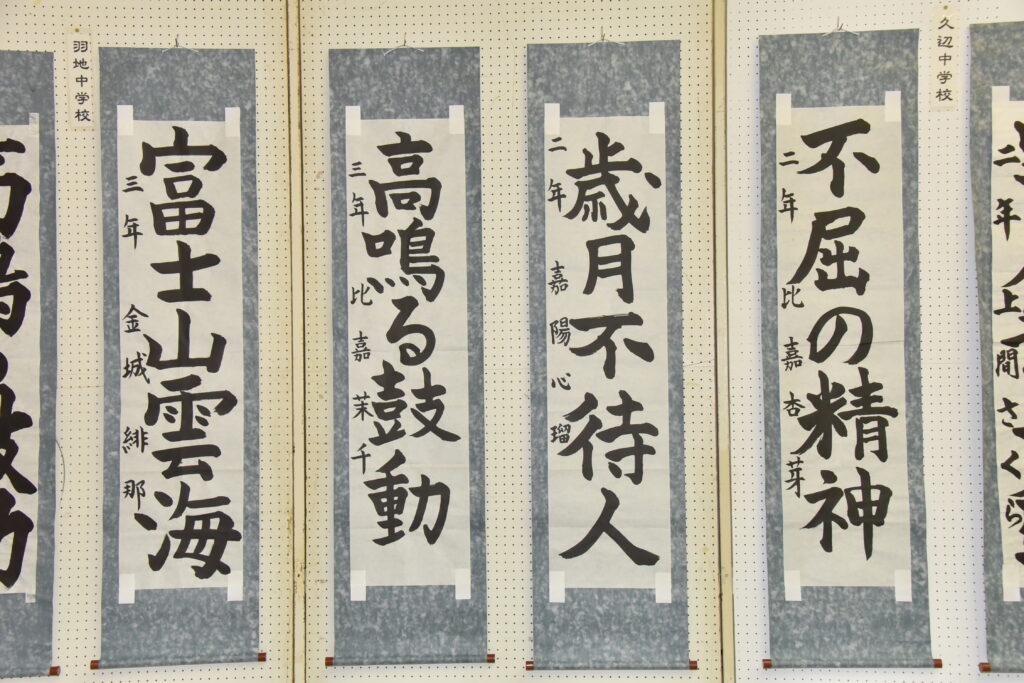 久辺中学校
不屈の精神
二年 比嘉杏芽
歳月不待人
二年 嘉陽心瑠
高鳴る鼓動
三年 比嘉茉千
羽地中学校
富士山雲海
三年 金城緋那
二年 上間さくら